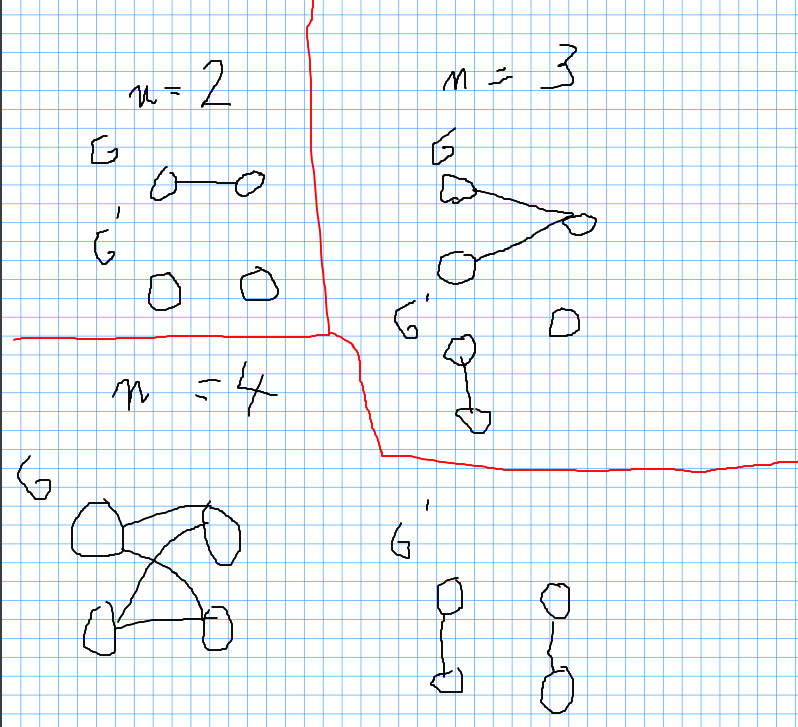 n = 2
G
G'
n = 3
G
G'
n = 4
G
G'